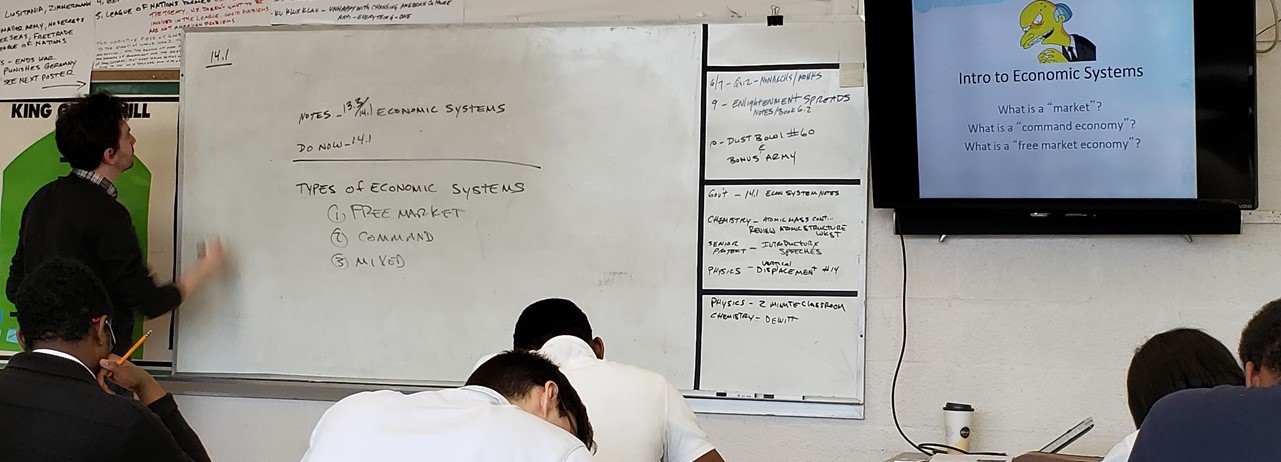 LUSITANIA, ZIMMERMANN
SEAS, FREETRADE
LEAGUE OF NATIONS
- ENDS WAR
PUNISHES GERMANY
SEE NEXT POSTER
5. LEAGUE OF NATIONS FORMED
KU KLUX KLAN - UNHAPPY WITH CHANGING AMERICA & MORE
ANTI - EVERYTHING & - ONE
KING
14.1
NOTES - 13.3/14.1 ECONOMIC SYSTEMS
DO NOW - 14.1
TYPES of ECONOMIC SYSTEMS
① FREE MARKET
② COMMAND
③ MIXED
6/7 - QUIZ - MONARCHS/MONKS
9 - ENLIGHTENMENT SPREADS
NOTES/BOOK 6.2
10 - DUST BOWL #60
&
BONUS ARMY
GOV'T - 14.1 ECON SYSTEM NOTES
CHEMISTRY - ATOMIC MASS CONT...
REVIEW ATOMIC STRUCTURE
WKST
SENIOR PROJECT - INTRODUCTORY
SPEECHES
PHYSICS - VERTICAL DISPLACEMENT #14
PHYSICS - 2 MINUTE CLASSROOM
CHEMISTRY - DEWITT
Intro to Economic Systems
What is a "market"?
What is a "command economy"?
What is a "free market economy"?